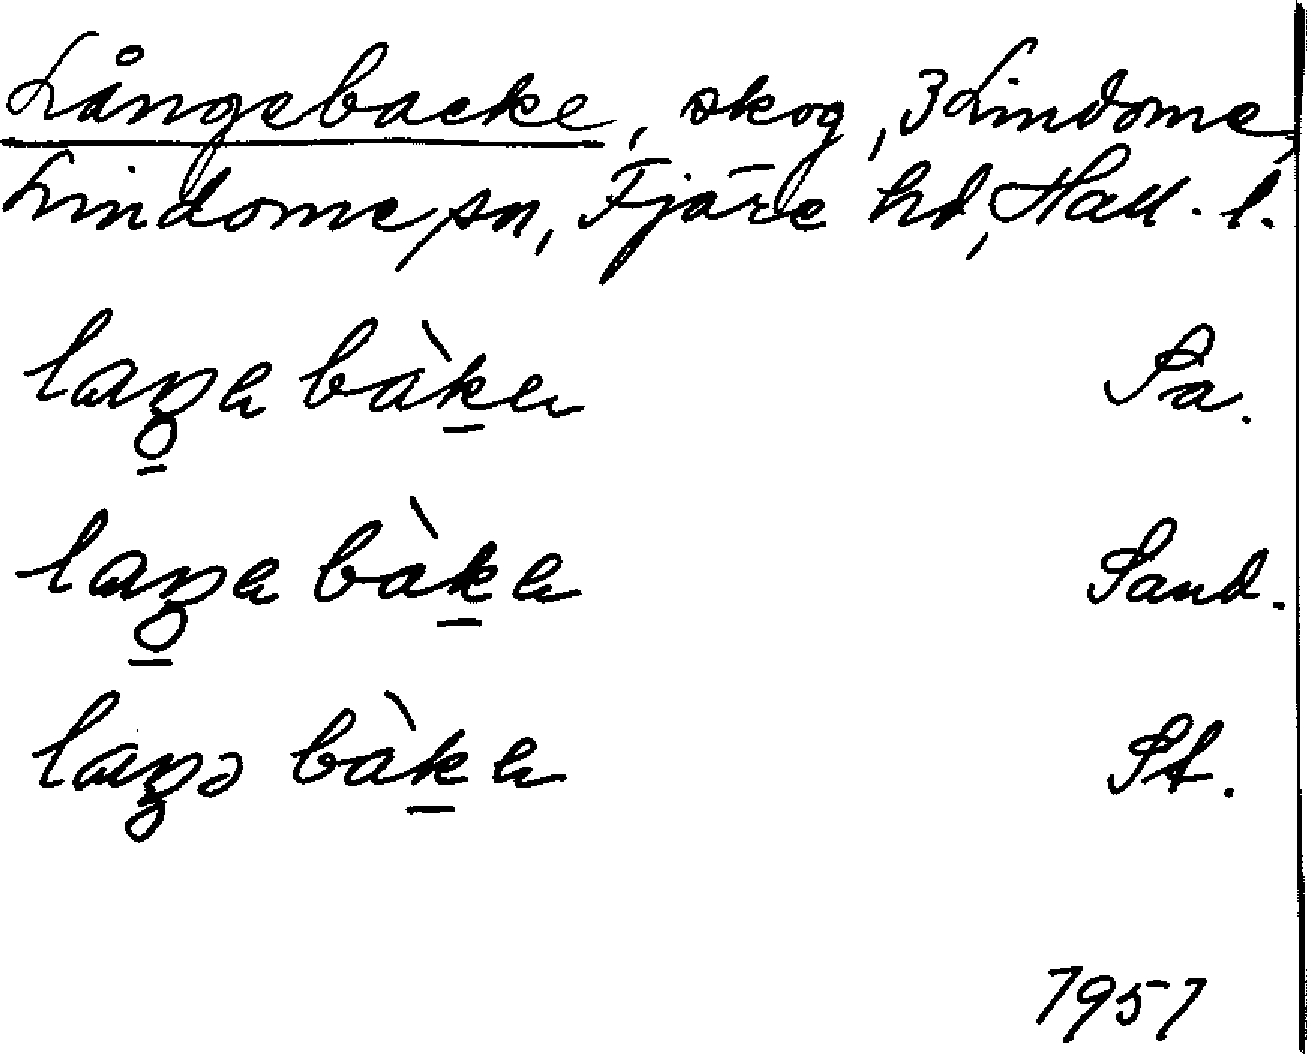 Långebacke, skog, 3 Lindome,
Lindome sn, Fjäre hd, Hall. l.
laŋa bàka Pa.
laŋa bàka Sand.
laŋə bàka St.
1951